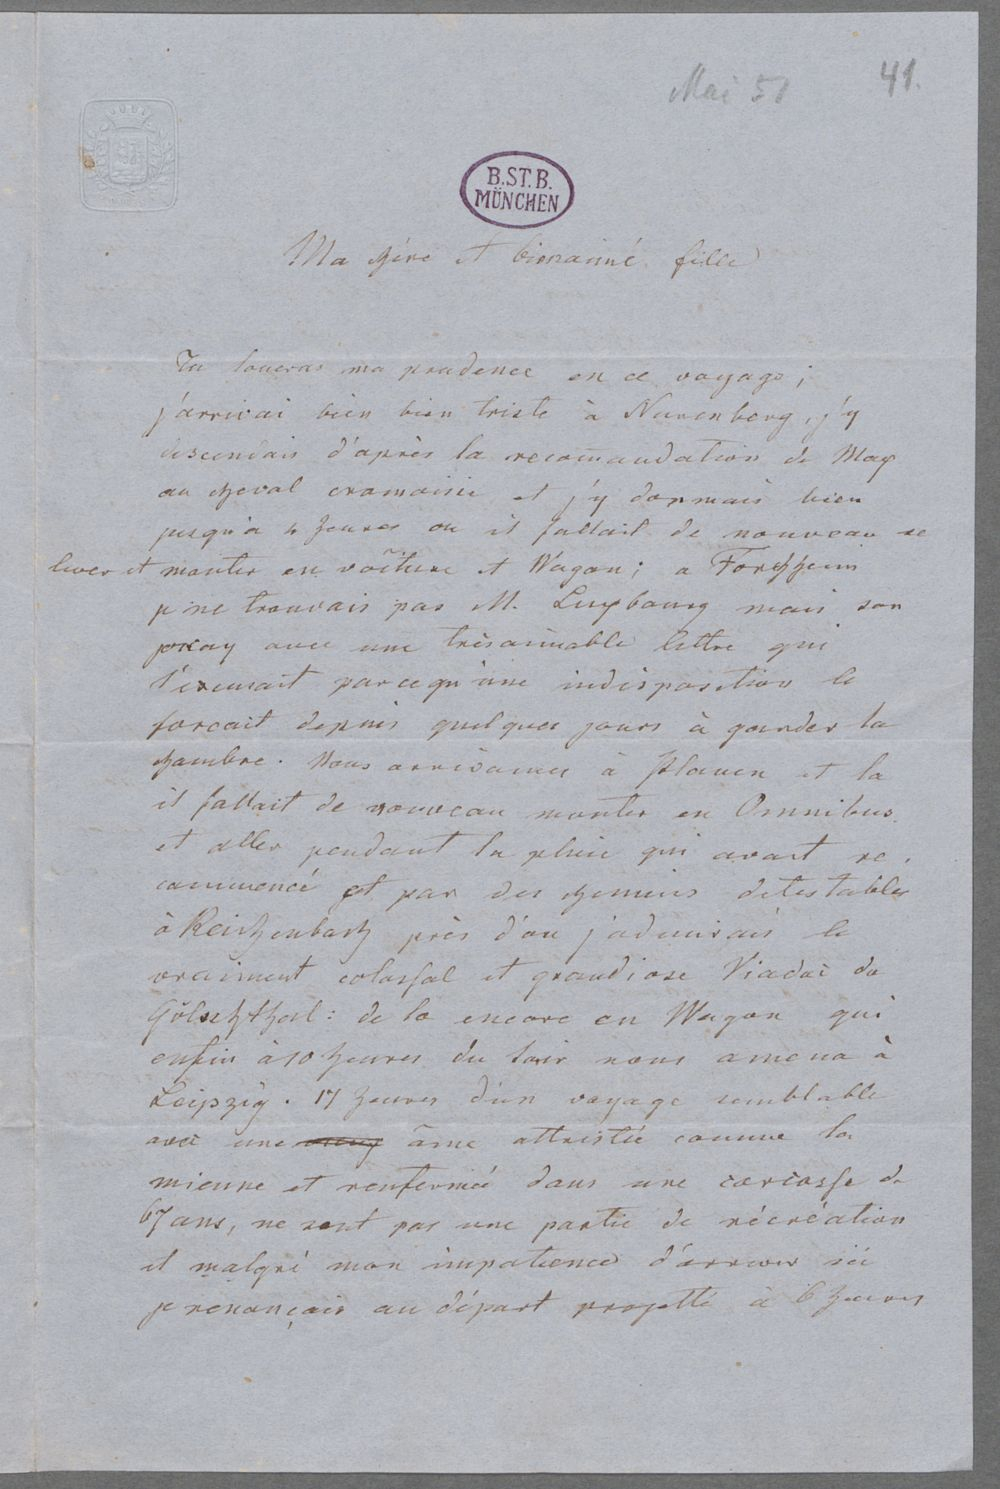 Mai 51
41.
B.ST.B.
MÜNCHEN
Ma chère et bienaimé fille
Tu loueras ma prudence en ce voyage;
j'arrivai bien bien triste à Nurenberg, j'y
descendais d'après la recom̄andation de Max
au cheval cramoisie et j'y dormais bien
jusqu'a 4 heures ou il fallait de nouveau se
lever et monter en voiture et Wagon; a Forchheim
je ne trouvais pas M. Luxbourg mais son
avec une trèsaimable lettre qui
s'éxcusait parcequ'une indisposition le
forcait depuis quelques jours à garder la
chambre. Nous arrivames à Plauen et la
il fallait de nouveau monter en Omnibus
et aller pendant la pluie qui avait re-
commencé et par des chemins detestables
à Reichenbach près d'ou j'admirais le
vraiment colossal et grandiose Viaduc du
Gölschthal: de la encore en Wagon qui
enfin à 10 heures du soir nous amena à
Leipzig. 17 heures d'un voyage semblable
avec une âme attristée comme la
mienne et renfermée dans une carcasse de
67 ans, ne sont pas une partie de récréation
et malgré mon impatience d'arriver ici
je renonçais au départ projetté à 6 heures